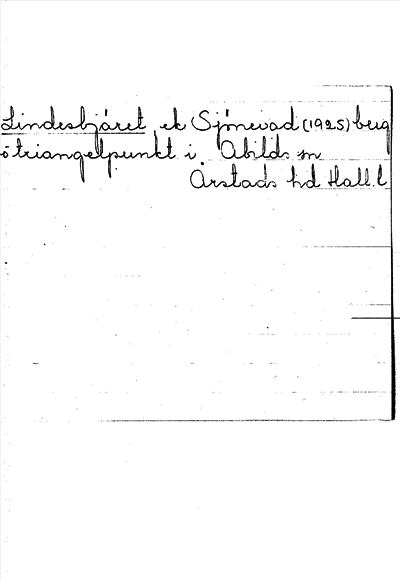 Lindesbjäret ek Sjönevad (1925) berg
o triangelpunkt i Abilds sn
Årstads hd Hall. l